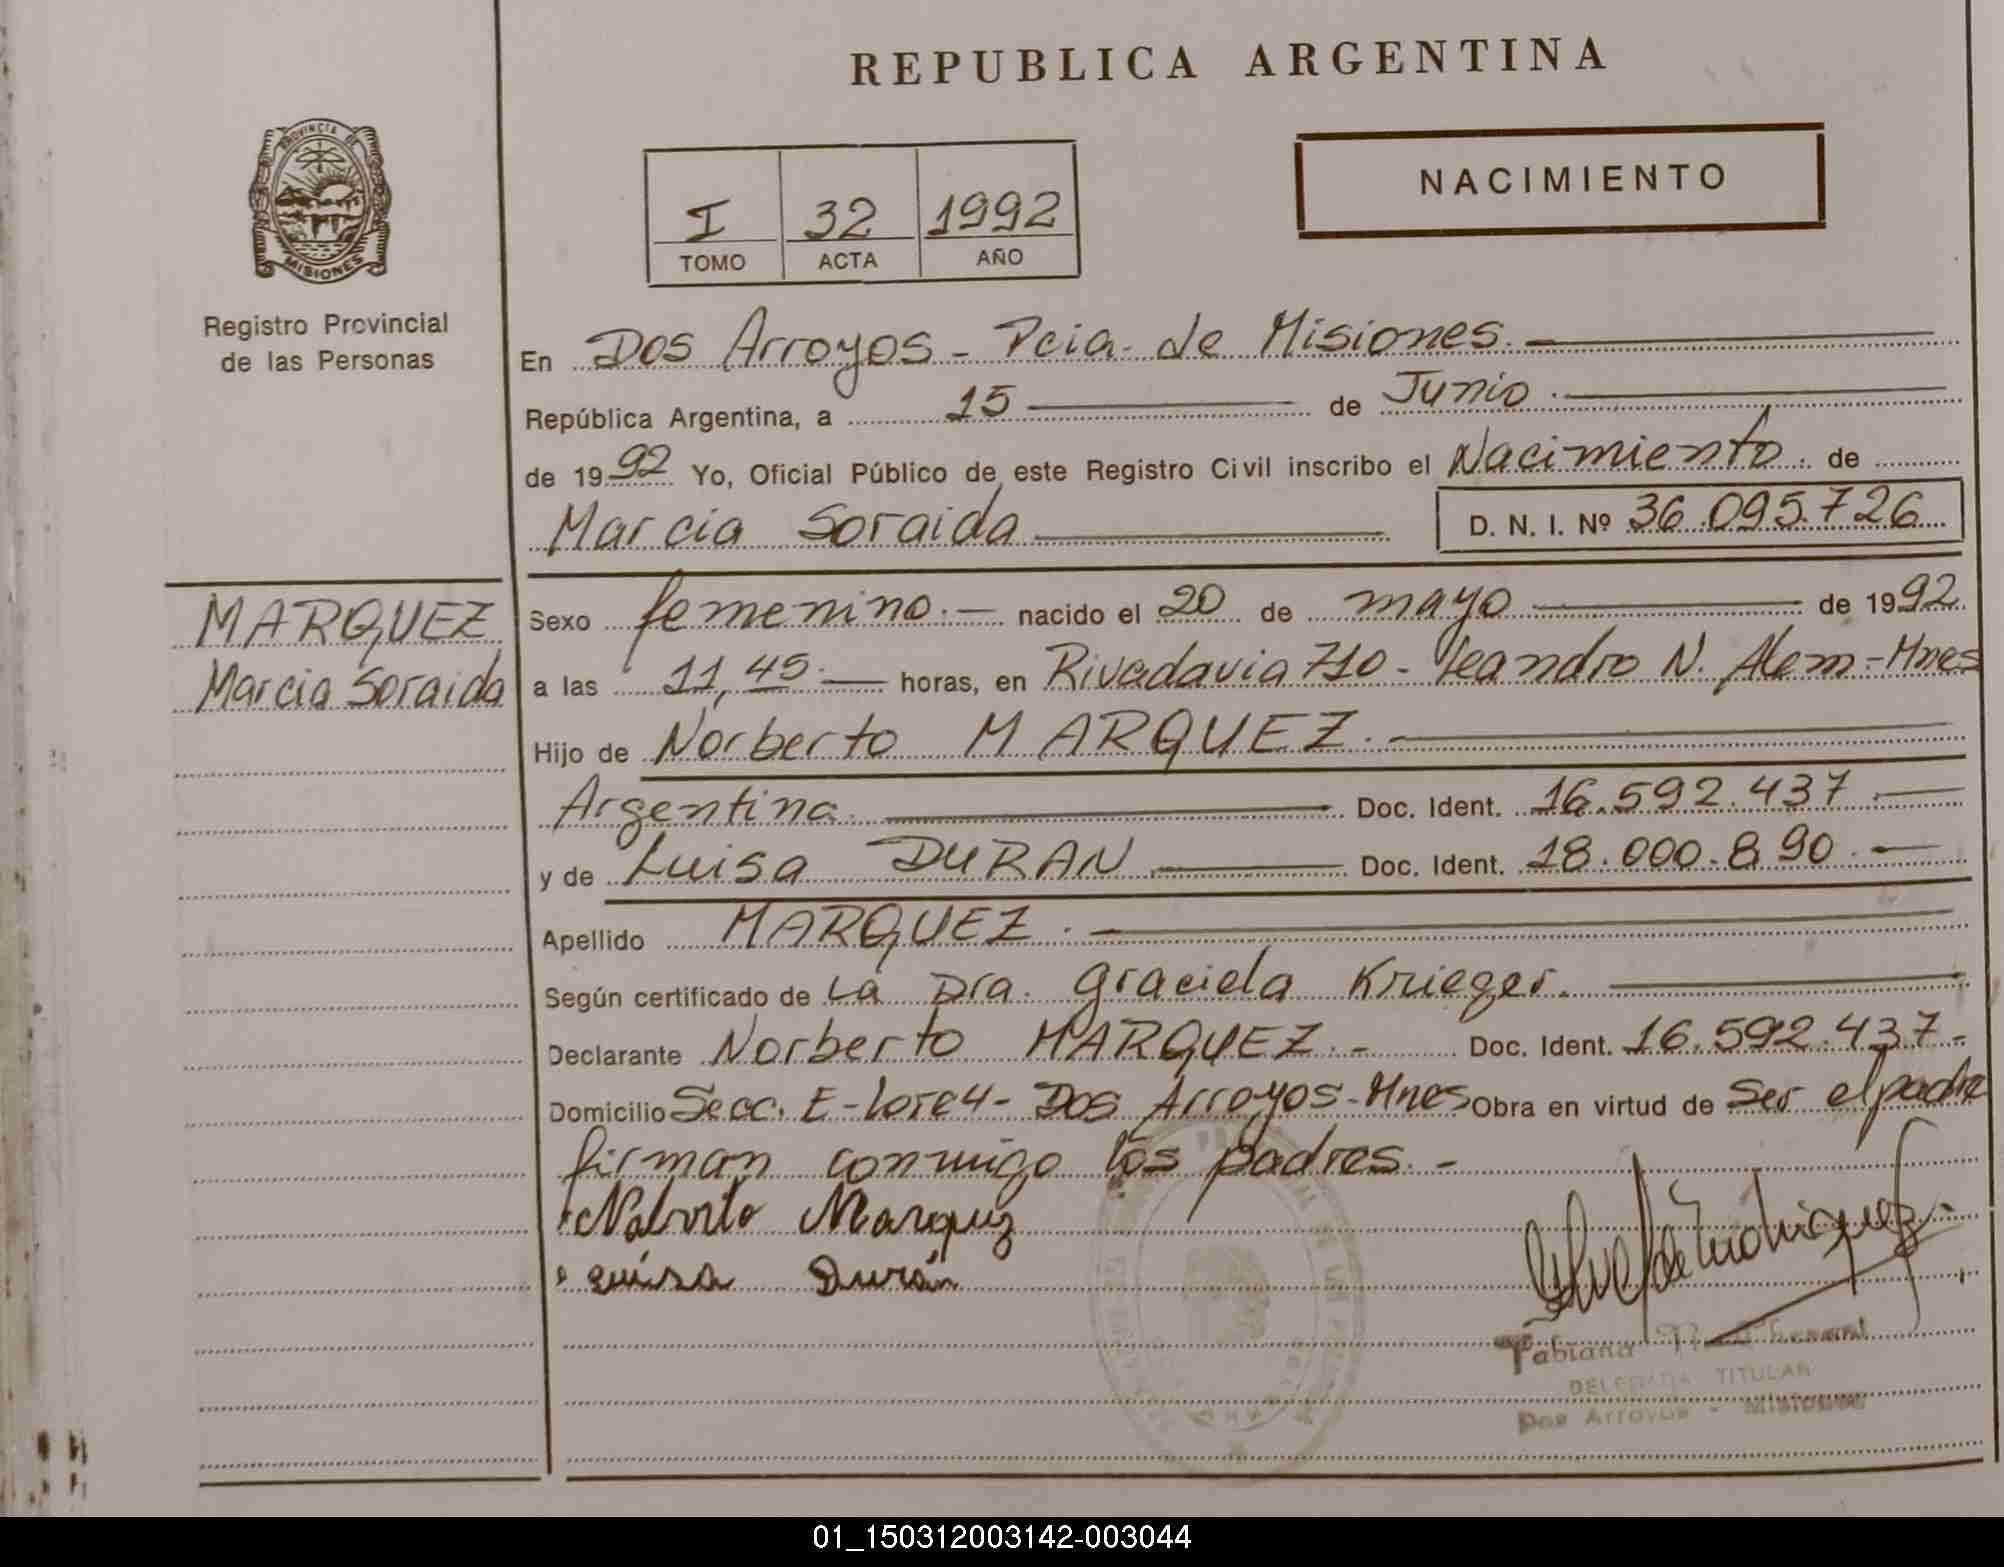 REPUBLICA ARGENTINA
PROVINCIA DE
MISIONES
Registro Provincial
de las Personas
I 32 1992
TOMO ACTA AÑO
NACIMIENTO
En Dos Arroyos - Pcia. de Misiones.
República Argentina, a 15 de Junio.
de 1992 Yo, Oficial Público de este Registro Civil inscribo el Nacimiento. de
Marcia Soraida D. N. I. Nº 36.095.726
MARQUEZ
Marcia Soraida
Sexo femenino.- nacido el 20 de mayo de 1992
a las 11,45.- horas, en Rivadavia 710- Leandro N. Alem-Mnes
Hijo de Norberto MARQUEZ.-
Argentina. Doc. Ident. 16.592.437.-
y de Luisa DURAN Doc. Ident. 18.000.890.-
Apellido MARQUEZ.-
Según certificado de La Dra. Graciela Krieger.
Declarante Norberto MARQUEZ.- Doc. Ident. 16.592.437-
Domicilio Secc. E-lote4- Dos Arroyos-Mnes Obra en virtud de ser el padre
firman conmigo los padres.-
Marquez
Luisa Durán
Fabiana
DELEGADA TITULAR
Dos Arroyos - Misiones
01_150312003142-003044